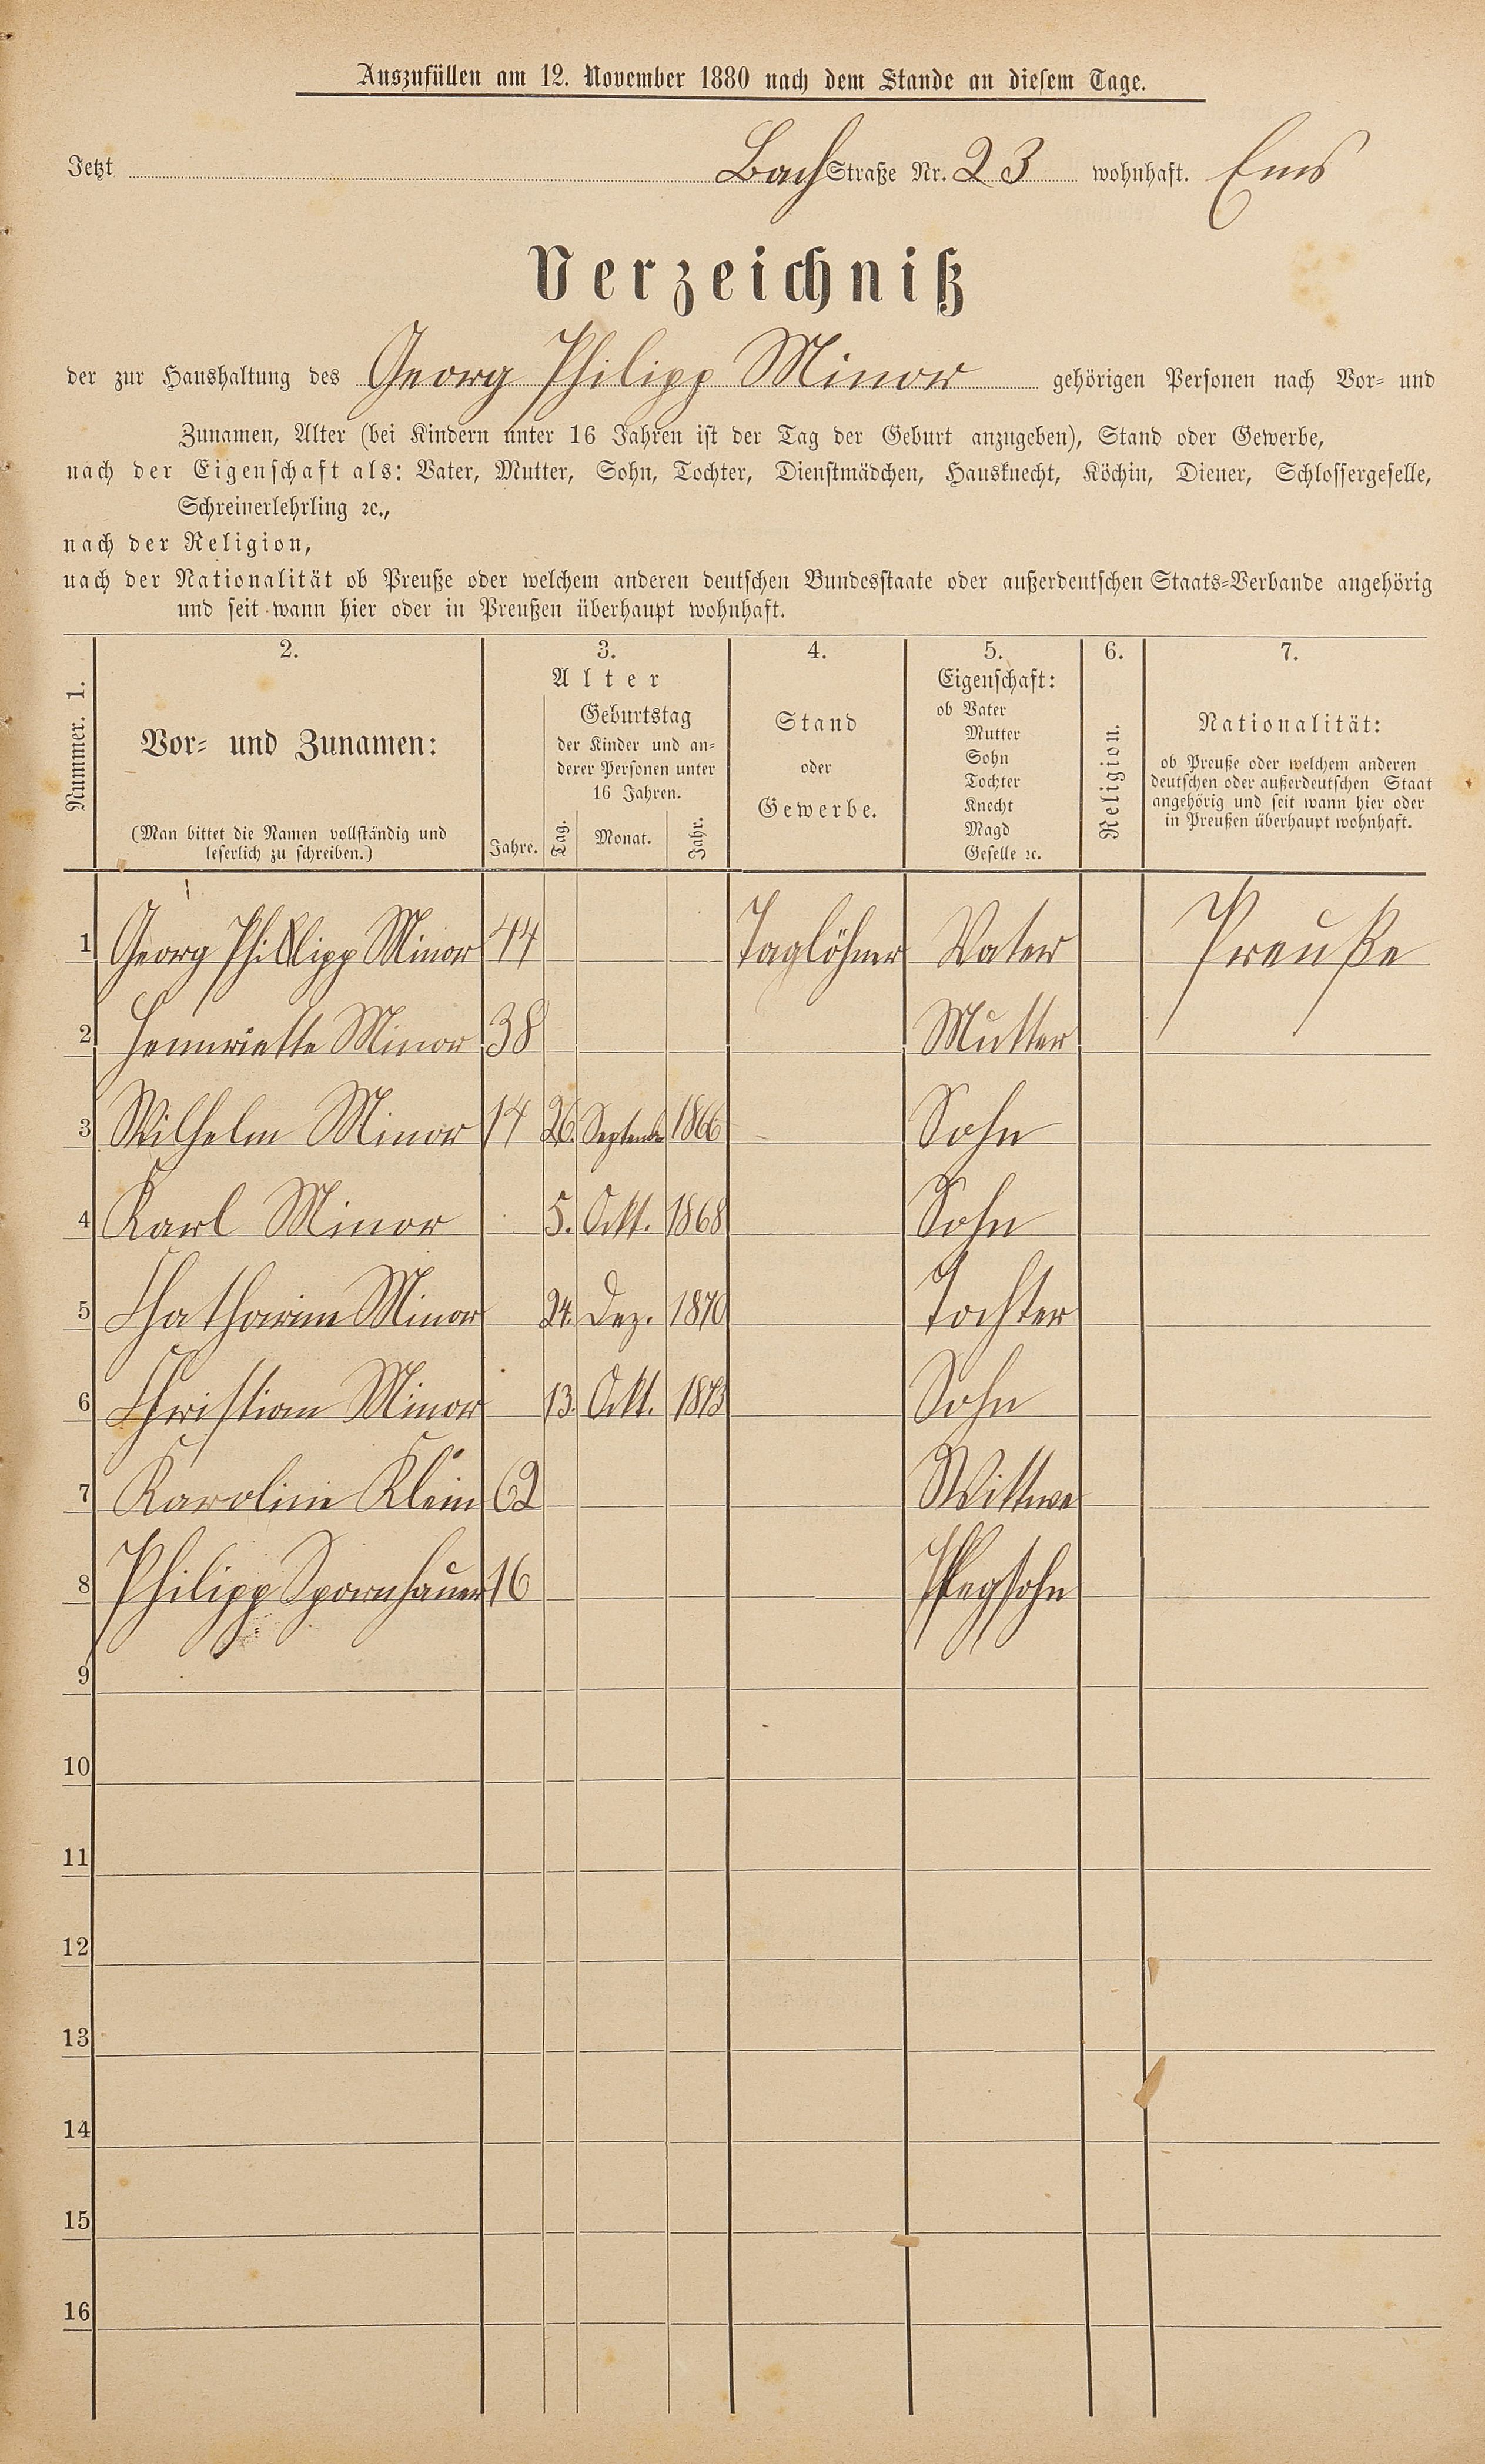 Auszufüllen am 12. November 1880 nach dem Stande an diesem Tage.
Jetzt Bach Straße Nr. 23 wohnhaft. Ems
Verzeichniß
der zur Haushaltung des Georg Philipp Minor gehörigen Personen nach Vor- und
Zunamen, Alter (bei Kindern unter 16 Jahren ist der Tag der Geburt anzugeben), Stand oder Gewerbe,
nach der Eigenschaft als: Vater, Mutter, Sohn, Tochter, Dienstmädchen, Hausknecht, Köchin, Diener, Schlossergeselle,
Schreinerlehrling ꝛc.,
nach der Religion,
nach der Nationalität ob Preuße oder welchem anderen deutschen Bundesstaate oder außerdeutschen Staats-Verbande angehörig
und seit wann hier oder in Preußen überhaupt wohnhaft.
Nummer. 1.
2.
Vor- und Zunamen:
(Man bittet die Namen vollständig und
leserlich zu schreiben.)
3.
Alter
Jahre.
Geburtstag
der Kinder und an-
derer Personen unter
16 Jahren.
Tag. Monat. Jahr.
4.
Stand
oder
Gewerbe.
5.
Eigenschaft:
ob Vater
Mutter
Sohn
Tochter
Knecht
Magd
Geselle ꝛc.
6.
Religion.
7.
Nationalität:
ob Preuße oder welchem anderen
deutschen oder außerdeutschen Staat
angehörig und seit wann hier oder
in Preußen überhaupt wohnhaft.
1 Georg Philipp Minor 44 Taglöhner Vater Preuße
2 Hennriette Minor 38 Mutter
3 Wilhelm Minor 14 26. September 1866 Sohn
4 Karl Minor 5. Okt. 1868 Sohn
5 Chatharine Minor 24. Dez. 1870 Tochter
6 Christian Minor 13. Okt. 1873 Sohn
7 Karoline Klein 62 Wittwe
8 Philipp Spornhauer 16 Pflegsohn
9
10
11
12
13
14
15
16